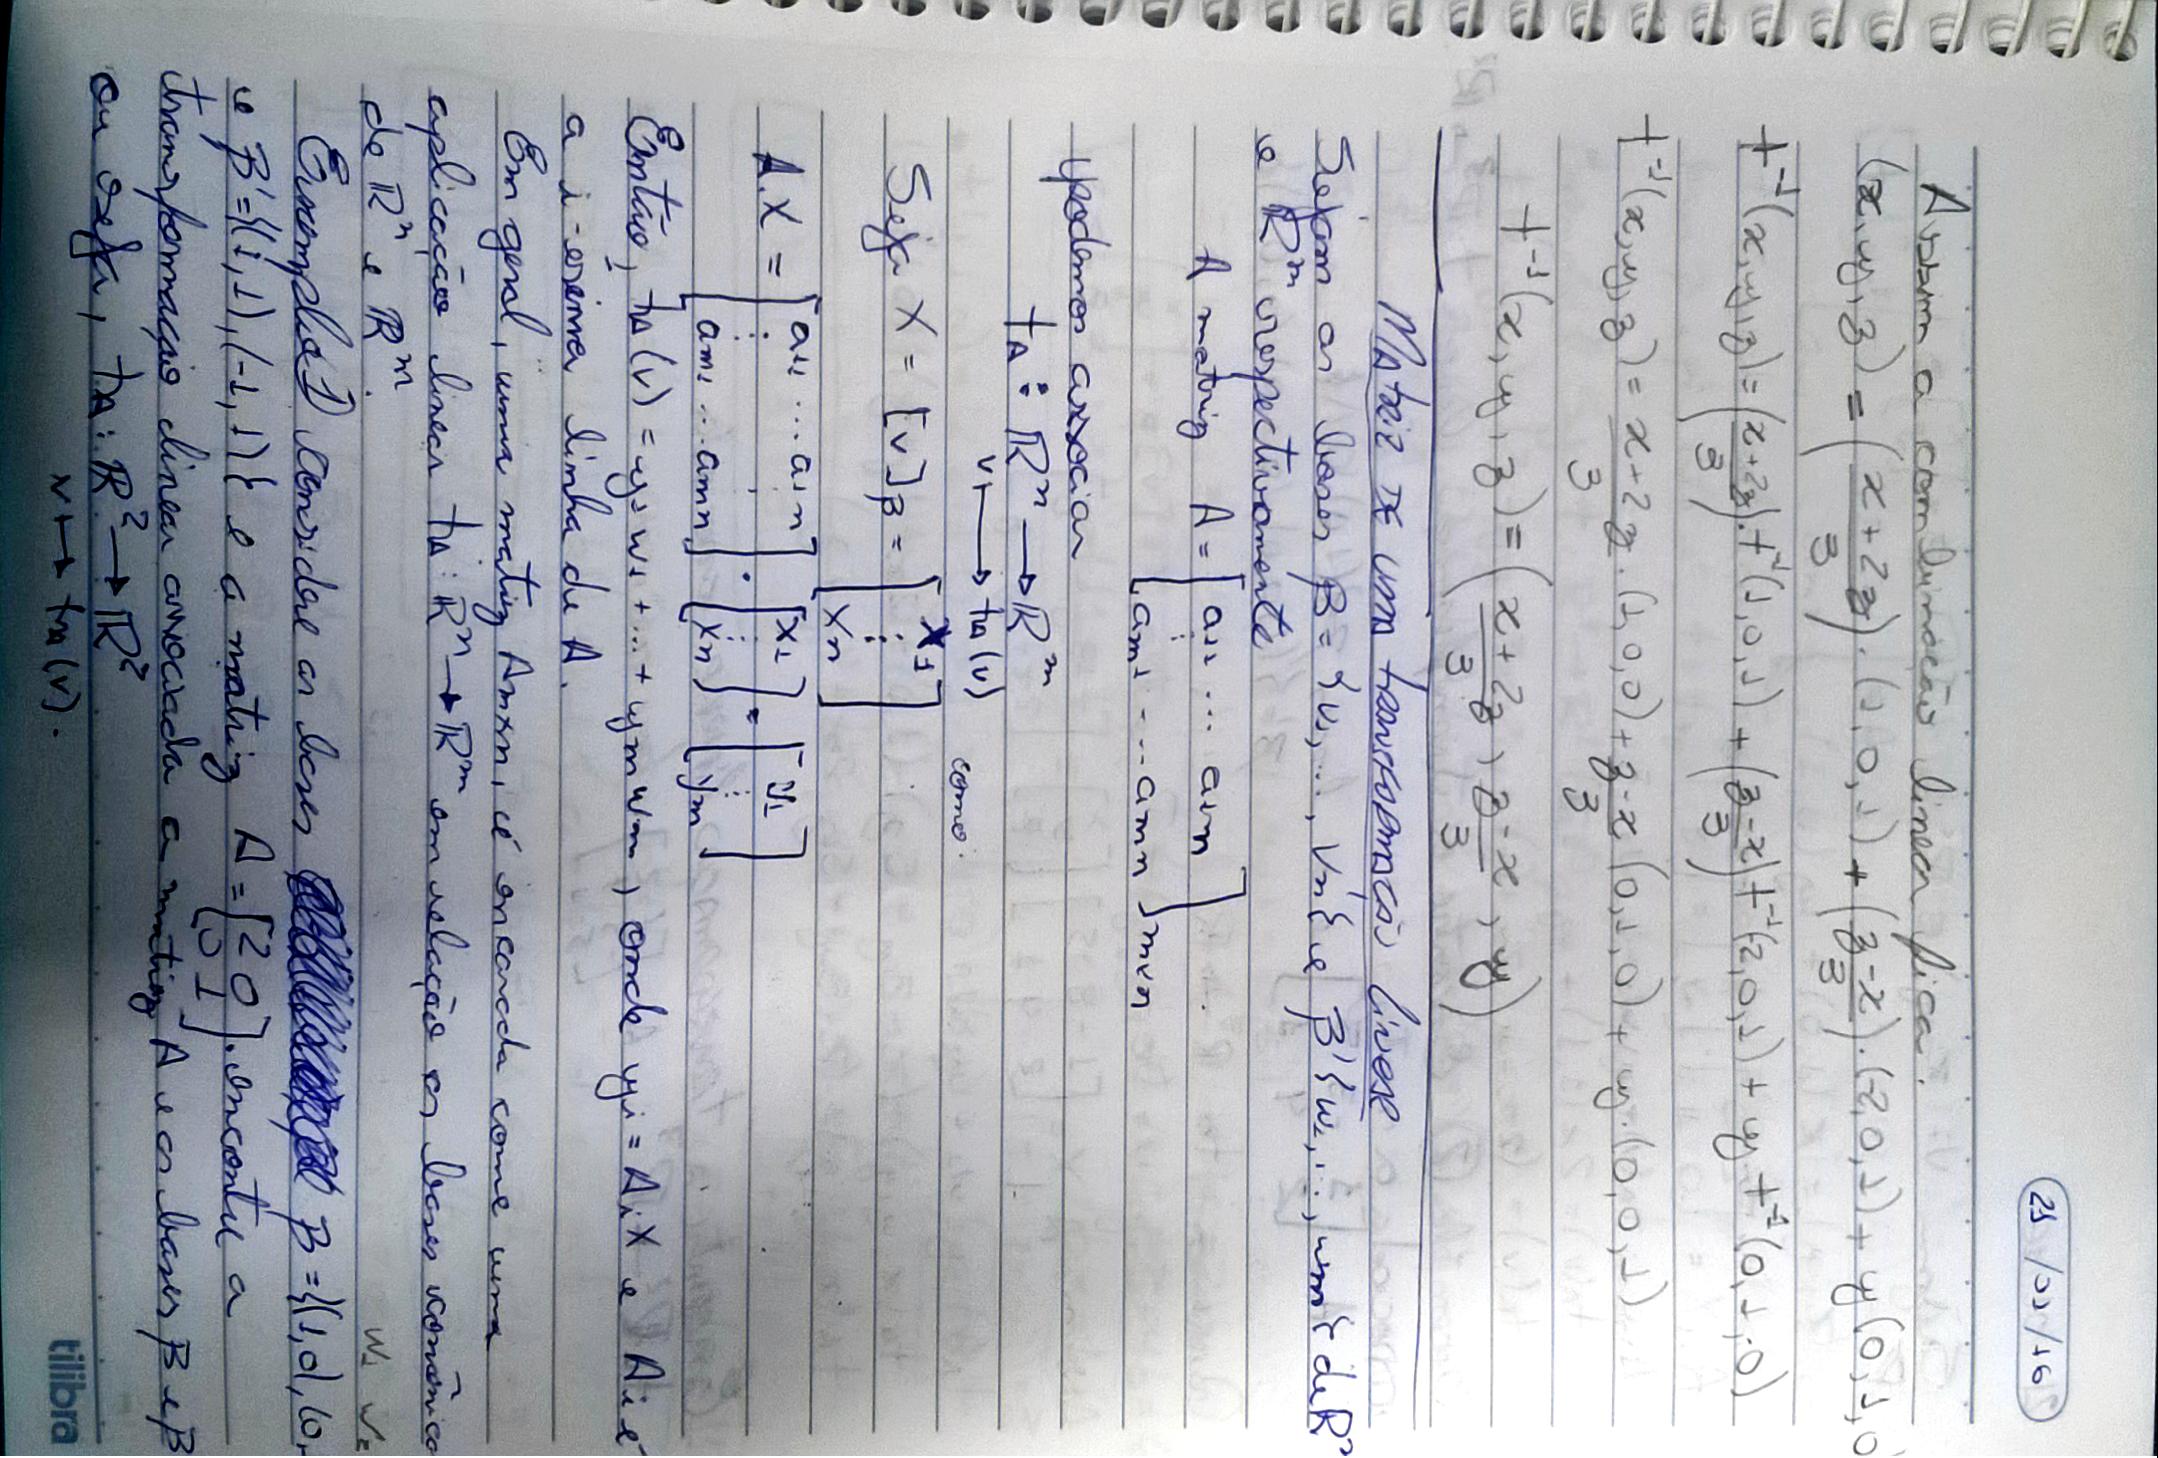 21 /01/16
Assim a combinação linear fica.
(x,y,z) = ((x+2z)/3).(1,0,1) + ((z-x)/3).(-2,0,1) + y(0,1,0)
t⁻¹(x,y,z) = ((x+2z)/3).t⁻¹(1,0,1) + ((z-x)/3) t⁻¹(-2,0,1) + y t⁻¹(0,1,0)
t⁻¹(x,y,z) = (x+2z)/3 . (1,0,0) + (z-x)/3 (0,1,0) + y.(0,0,1)
t⁻¹(x,y,z) = ((x+2z)/3, (z-x)/3, y)
MATRIZ DE UMA TRANSFORMAÇÃO LINEAR
Sejam as bases β = {v₁, ..., vn} e β'{w₁, ..., wm} de Rⁿ
e Rᵐ respectivamente
A matriz A = [a₁₁ ... a₁n
⋮
am₁ ... amn] mxn
podemos associar
tA : Rⁿ → Rᵐ
v ↦ tA(v) como
Seja X = [v]β = [x₁
⋮
xn]
A.X = [a₁₁ ... a₁n ⋮ am₁ ... amn] . [x₁ ⋮ xn] = [y₁ ⋮ ym]
Então, tA(v) = y₁w₁ + ... + ymwm, onde yi = AiX e Ai é
a i-ésima linha de A.
Em geral, uma matriz Amxn, é encarada como uma
aplicação linear tA: Rⁿ → Rᵐ em relação as bases canônica
de Rⁿ e Rᵐ.
w₁ w₂
Exemplo 1) considere as bases β = {(1,0), (0,
e β' = {(1,1), (-1,1)} e a matriz A = [2 0
0 1]. encontre a
transformação linear associada a matriz A e as bases β e β
ou seja, tA: R² → R²
v ↦ tA(v).
tilibra